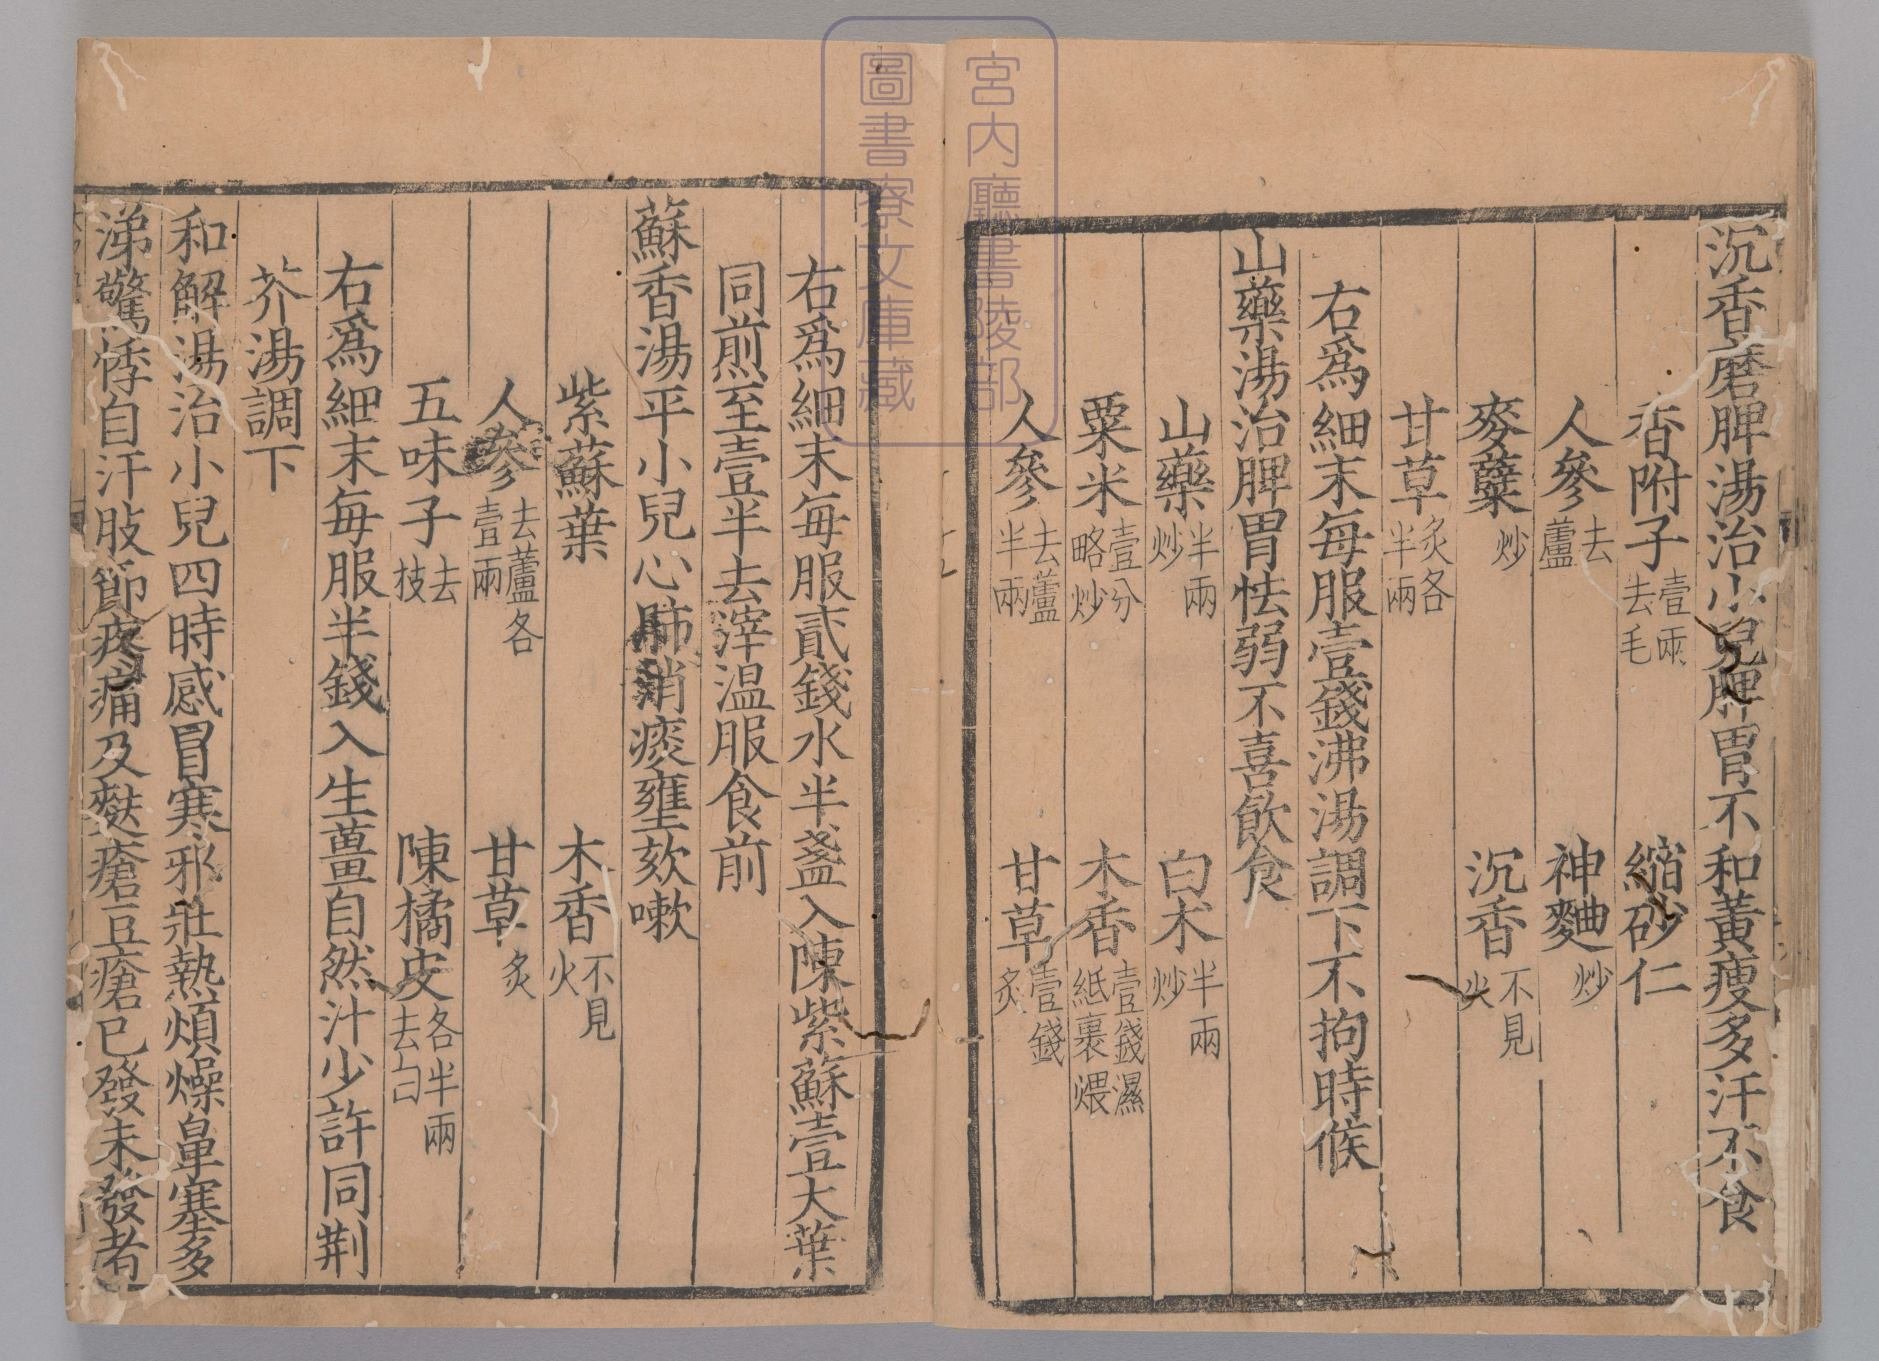 沉香磨脾湯治小兒脾胃不和黃瘦多汗不食
香附子壹兩去毛　縮砂仁
人參去蘆　神麯炒
麥蘖炒　沉香不見火
甘草炙各半兩
右爲細末每服壹錢沸湯調下不拘時候
山藥湯治脾胃怯弱不喜飲食
山藥半兩炒　白朮半兩炒
粟米壹分略炒　木香壹錢濕紙裹煨
人參去蘆半兩　甘草壹錢炙
右爲細末每服貳錢水半盞入陳紫蘇壹大葉
同煎至壹半去滓溫服食前
蘇香湯平小兒心肺消痰壅欬嗽
紫蘇葉　木香不見火
人參去蘆各壹兩　甘草炙
五味子去技　陳橘皮各半兩去白
右爲細末每服半錢入生薑自然汁少許同荆
芥湯調下
和解湯治小兒四時感冒寒邪壯熱煩燥鼻塞多
涕驚悸自汗肢節疼痛及麩瘡豆瘡已發未發者
宮内廳書陵部
圖書寮文庫藏